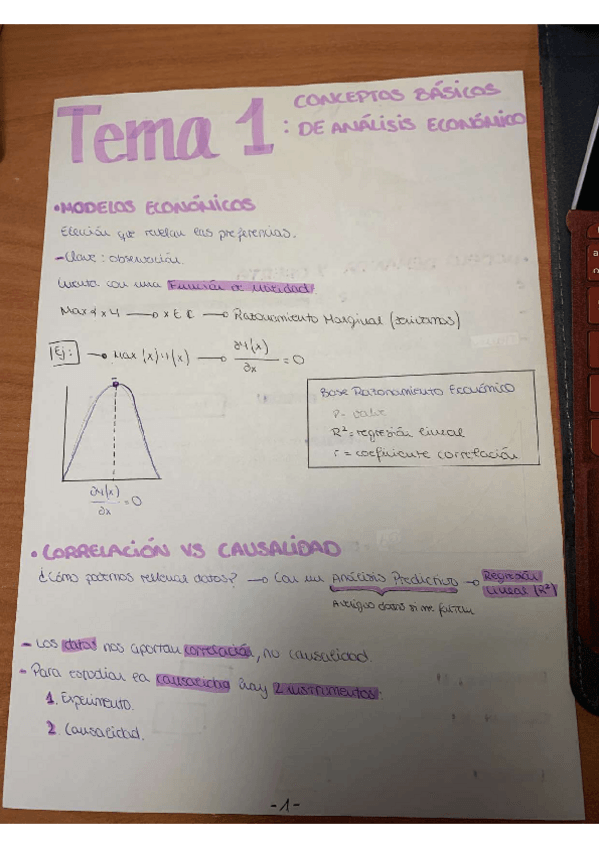 Tema 1 : CONCEPTOS BÁSICOS
DE ANÁLISIS ECONÓMICO
• MODELOS ECONÓMICOS
Elección que revelan las preferencias.
- Clave: observación
Cuenta con una Función de Utilidad.
Max 4 x 4 → x ∈ C → Razonamiento Marginal (
Ej: → Max (x) 4(x) → ∂4(x)/∂x = 0
∂4(x)/∂x = 0
Base Razonamiento Económico
P- value
R² = regresión lineal
r = coeficiente correlación
• CORRELACIÓN VS CAUSALIDAD
¿Cómo podemos rellenar datos? → Con un Análisis Predictivo → Regresión
Lineal (R²)
Averiguo datos si me faltan
- Los datos nos aportan correlación, no causalidad.
- Para estudiar la causalidad hay 2 instrumentos
1. Experimento.
2. Causalidad.
- 1 -